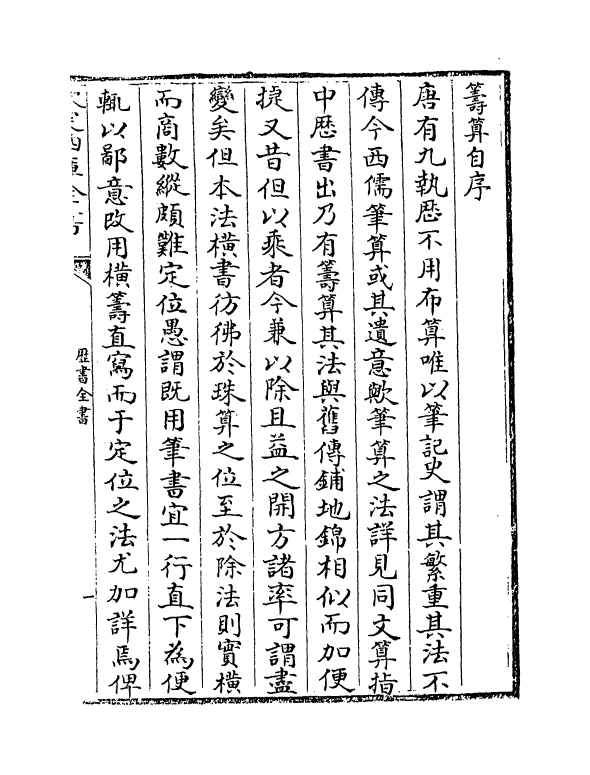 籌算自序
唐有九執歴不用布算唯以筆記史謂其繁重其法不
傳今西儒筆算或其遺意歟筆算之法詳見同文算指
中歴書出乃有籌算其法與舊傳鋪地錦相似而加便
捷又昔但以乘者今兼以除且益之開方諸率可謂盡
變矣但本法横書彷彿於珠算之位至於除法則實横
而商數縱頗難定位愚謂既用筆書宜一行直下為便
輒以鄙意改用横籌直寫而于定位之法尤加詳焉俾
歴書全書
一